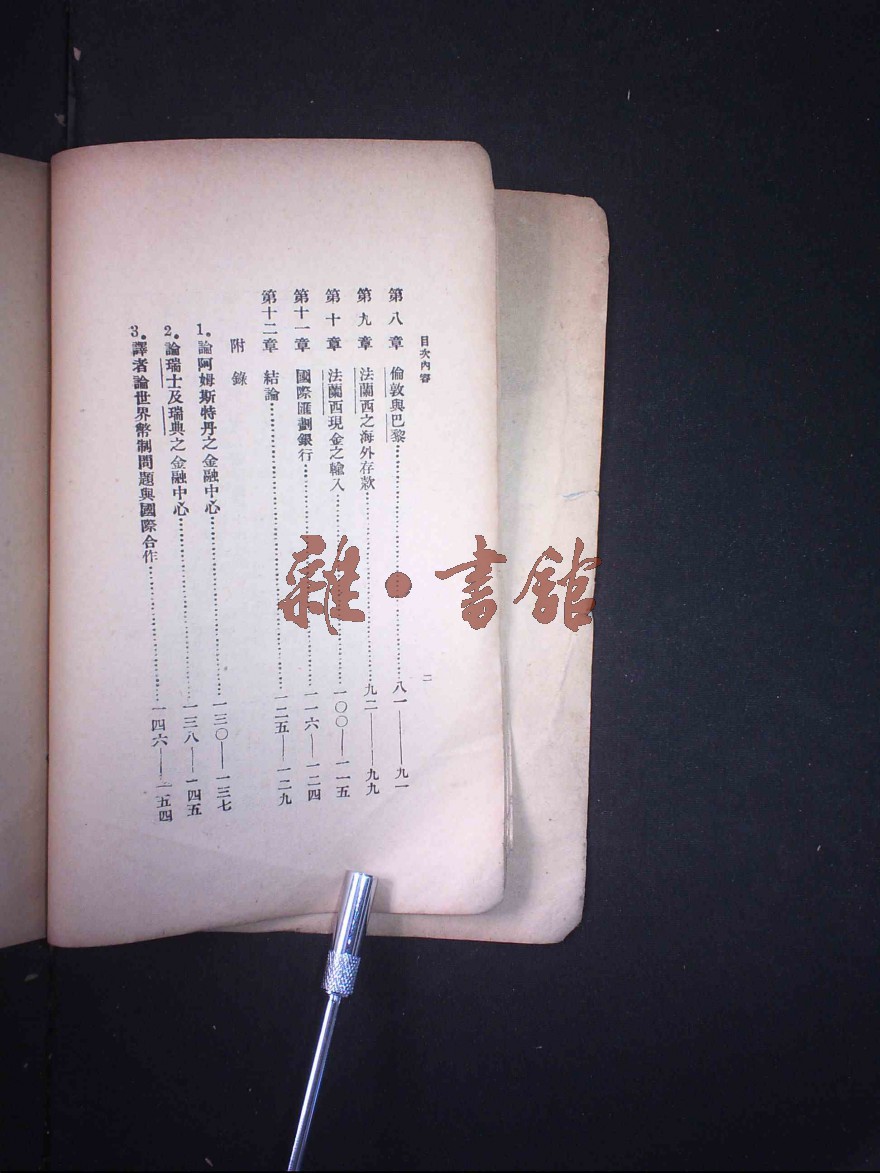 目次內容
二
第八章　倫敦與巴黎……八一——九一
第九章　法蘭西之海外存款……九二——九九
第十章　法蘭西現金之輸入……一〇〇——一一五
第十一章　國際匯劃銀行……一一六——一二四
第十二章　結論……一二五——一二九
附錄
1. 論阿姆斯特丹之金融中心……一三〇——一三七
2. 論瑞士及瑞典之金融中心……一三八——一四五
3. 譯者論世界幣制問題與國際合作……一四六——一五四
雜·書館